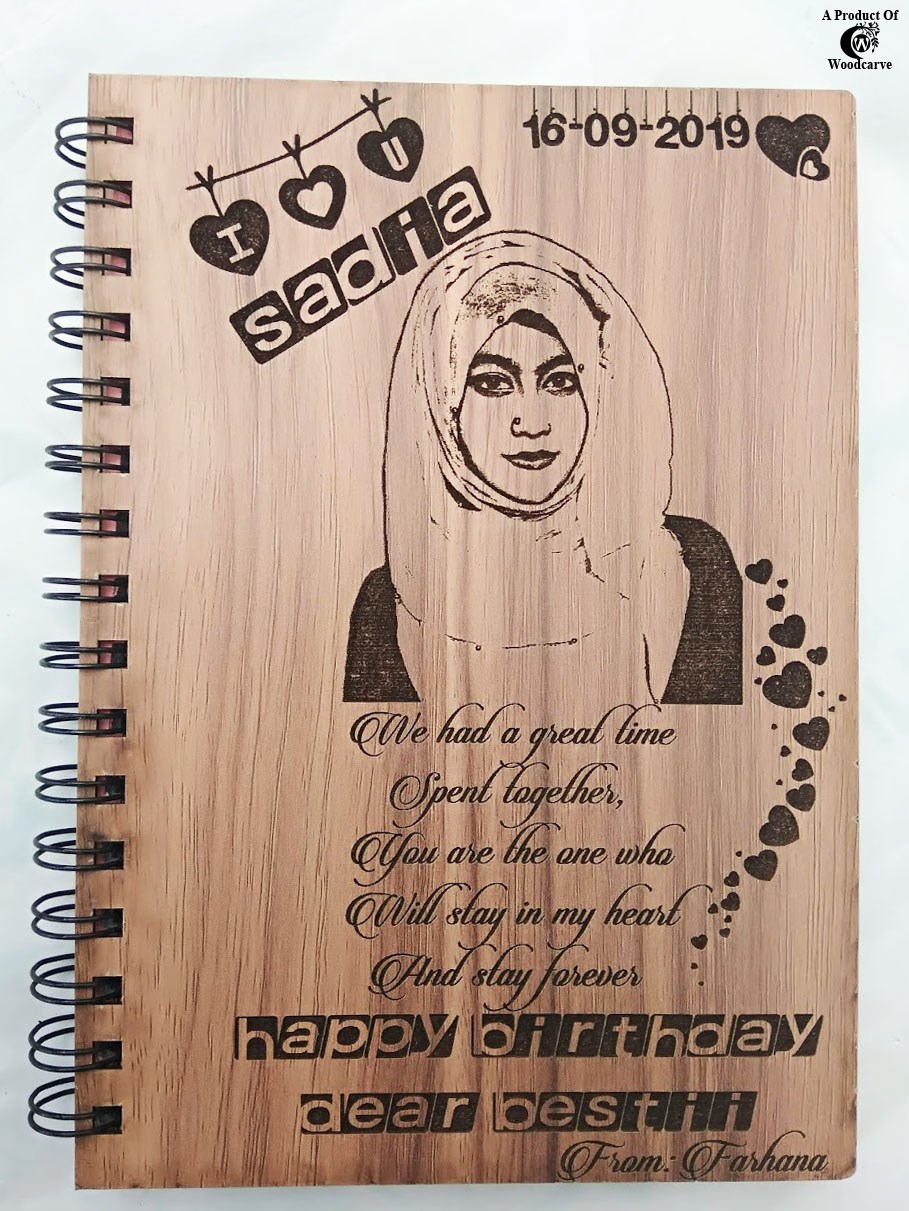 A Product Of
CW
Woodcarve
16-09-2019
I U
sadia
We had a great time
Spent together,
You are the one who
Will stay in my heart
And stay forever
happy birthday
dear bestii
From: Farhana